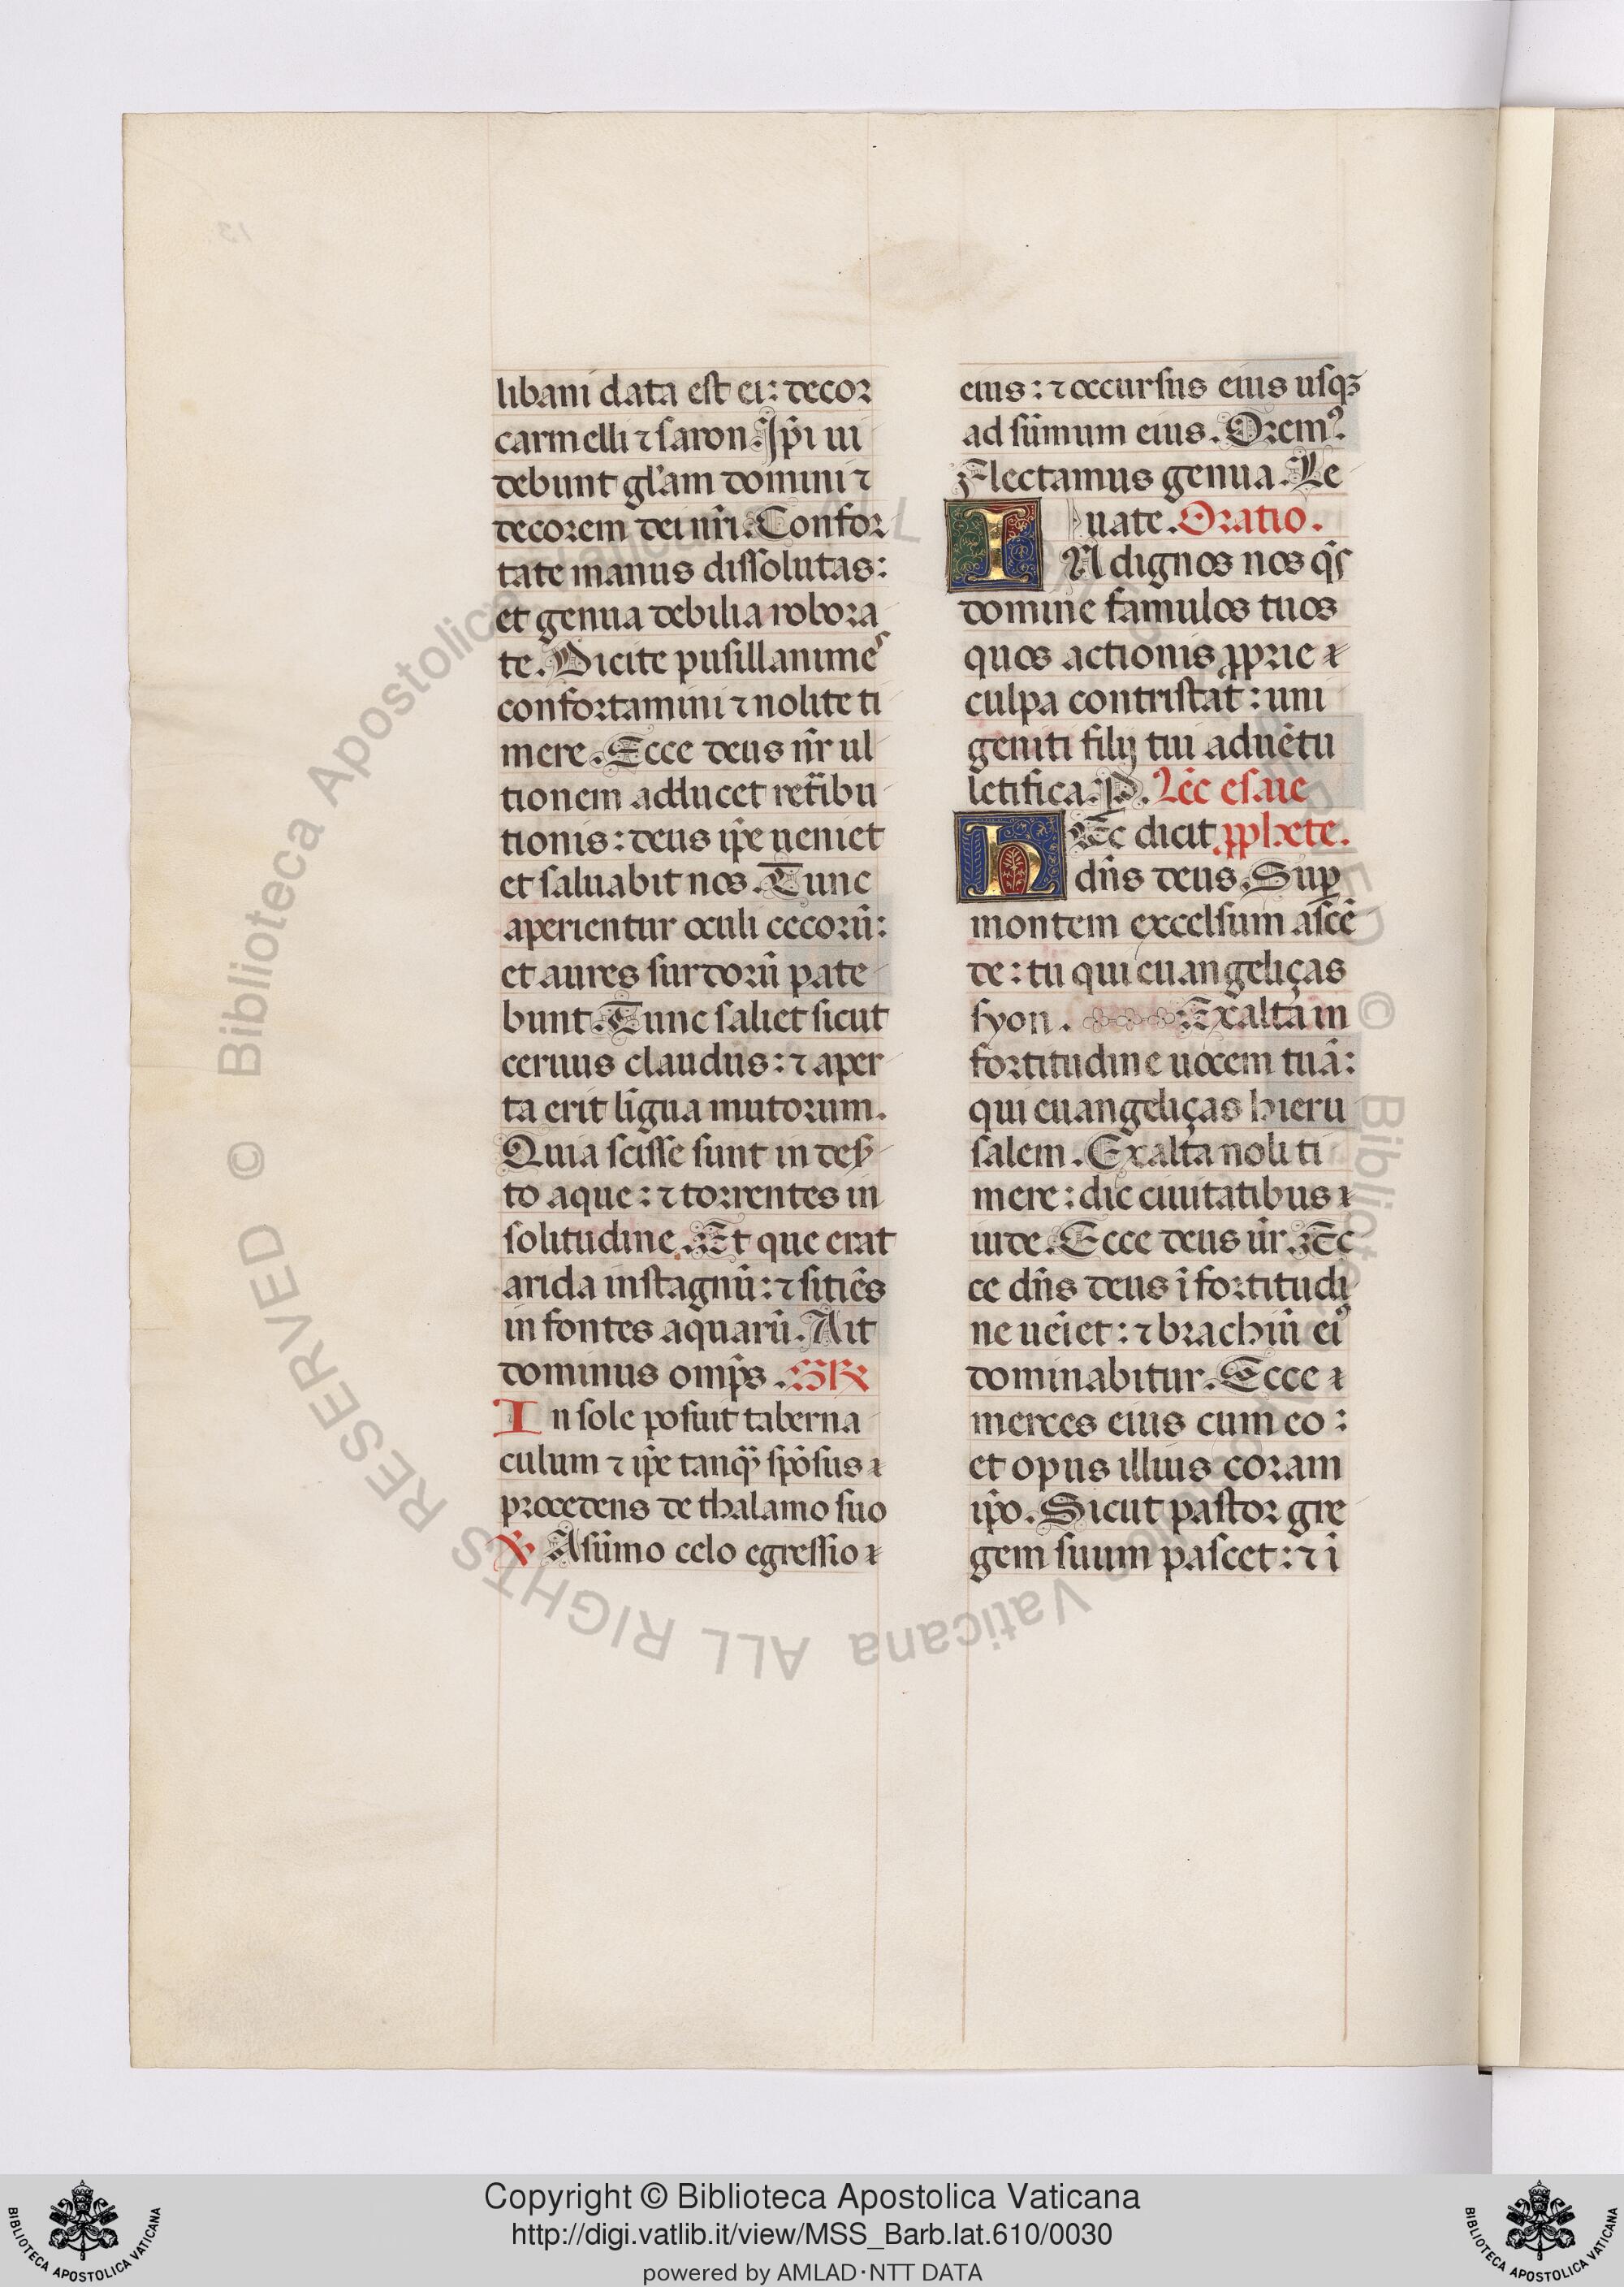 libani data est ei: decor
carmelli ⁊ saron. Ip̃i ui
debunt gl̃am domini ⁊
decorem dei nr̃i. Confor
tate manus dissolutas:
et genua debilia robora
te. Dicite pusillanimes
confortamini ⁊ nolite ti
mere. Ecce deus nr̃ ul
tionem adducet ret̃ibu
tionis: deus ip̃e ueniet
et saluabit nos. Tunc
aperientur oculi cecorũ:
et aures surdorũ pate
bunt. Tunc saliet sicut
ceruus claudus: ⁊ aper
ta erit lingua mutorum.
Quia scisse sunt in deser
to aque: ⁊ torrentes in
solitudine. Et que erat
arida in stagnũ: ⁊ sitiẽs
in fontes aquarũ. Ait
dominus omp̃s. GR
In sole posuit taberna
culum ⁊ ip̃e tanq̃ spõsus
procedens de thalamo suo
V A sũmo celo egressio
eius: ⁊ occursus eius usqꝫ
ad sũmum eius. Oremꝰ.
Flectamus genua. Le
uate. Oratio.
INdignos nos qs̃
domine famulos tuos
quos actionis ꝓprie
culpa contristat: uni
geniti filij tui aduẽtu
letifica. P. Lec̃ esaie
HEc dicit ꝓphete.
dñs deus. Suꝑ
montem excelsum ascẽ
de: tu qui euangeliças
syon. Exalta in
fortitudine uocem tuã:
qui euangeliças hieru
salem. Exalta noli ti
mere: dic ciuitatibus
iude. Ecce deus ur̃. Ec
ce dñs deus ĩ fortitudi
ne ueĩet: ⁊ brachiũ eiꝰ
dominabitur. Ecce
merces eius cum eo:
et opus illius coram
ip̃o. Sicut pastor gre
gem suum pascet: ⁊ ĩ
© Biblioteca Apostolica Vaticana ALL RIGHTS RESERVED
Copyright © Biblioteca Apostolica Vaticana
http://digi.vatlib.it/view/MSS_Barb.lat.610/0030
powered by AMLAD·NTT DATA
BIBLIOTECA APOSTOLICA VATICANA
BIBLIOTECA APOSTOLICA VATICANA